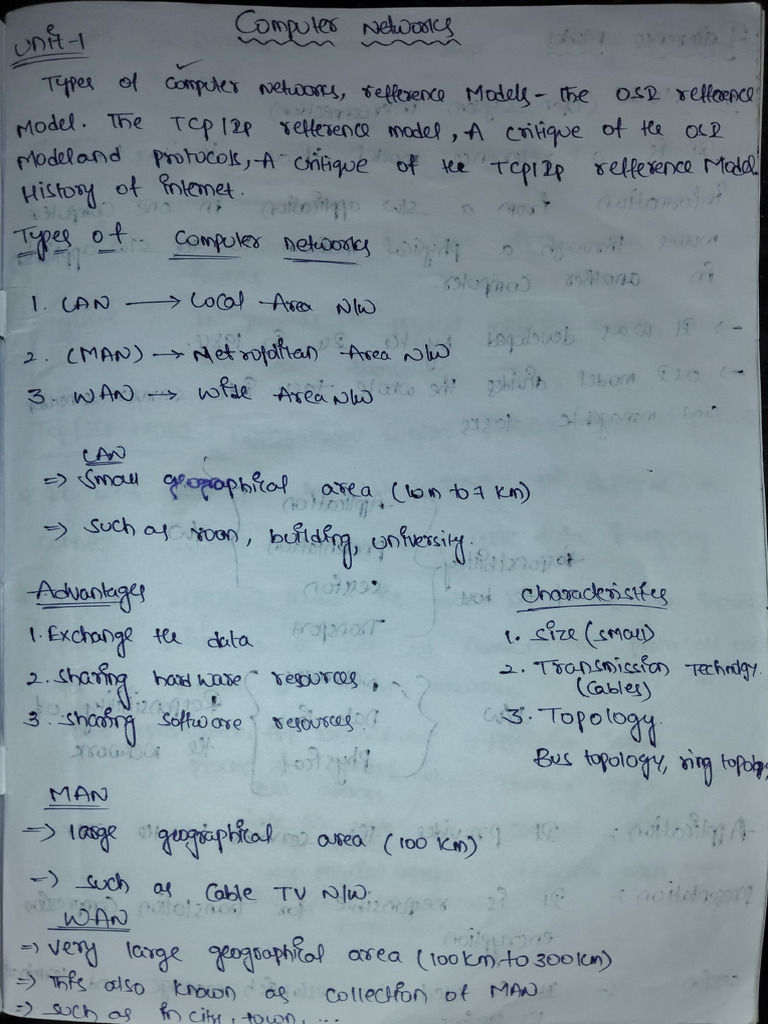 Computer Networks
Unit-1
Types of computer networks, refference Models - the OSI refference
Model. The TCP/Ip refference model, A critique of the OSI
Model and protocols, A critique of the TCP/Ip refference Model
History of internet.
Types of computer networks
1. LAN → Local Area N/W
2. (MAN) → Metropolitian Area N/W
3. WAN → Wide Area N/W
LAN
⇒ Small geographical area (10m to 7 km)
⇒ such as room, building, university.
Advantages
1. Exchange the data
2. Sharing hardware resources.
3. Sharing software resources.
Characteristics
1. Size (small)
2. Transmission Technolgy.
(cables)
3. Topology.
Bus topology, ring topology
MAN
⇒ large geographical area (100 km)
⇒ such as Cable TV N/W.
WAN
⇒ very large geographical area (100km to 300km)
⇒ This also known as collection of MAN
⇒ such as in city, town, ...